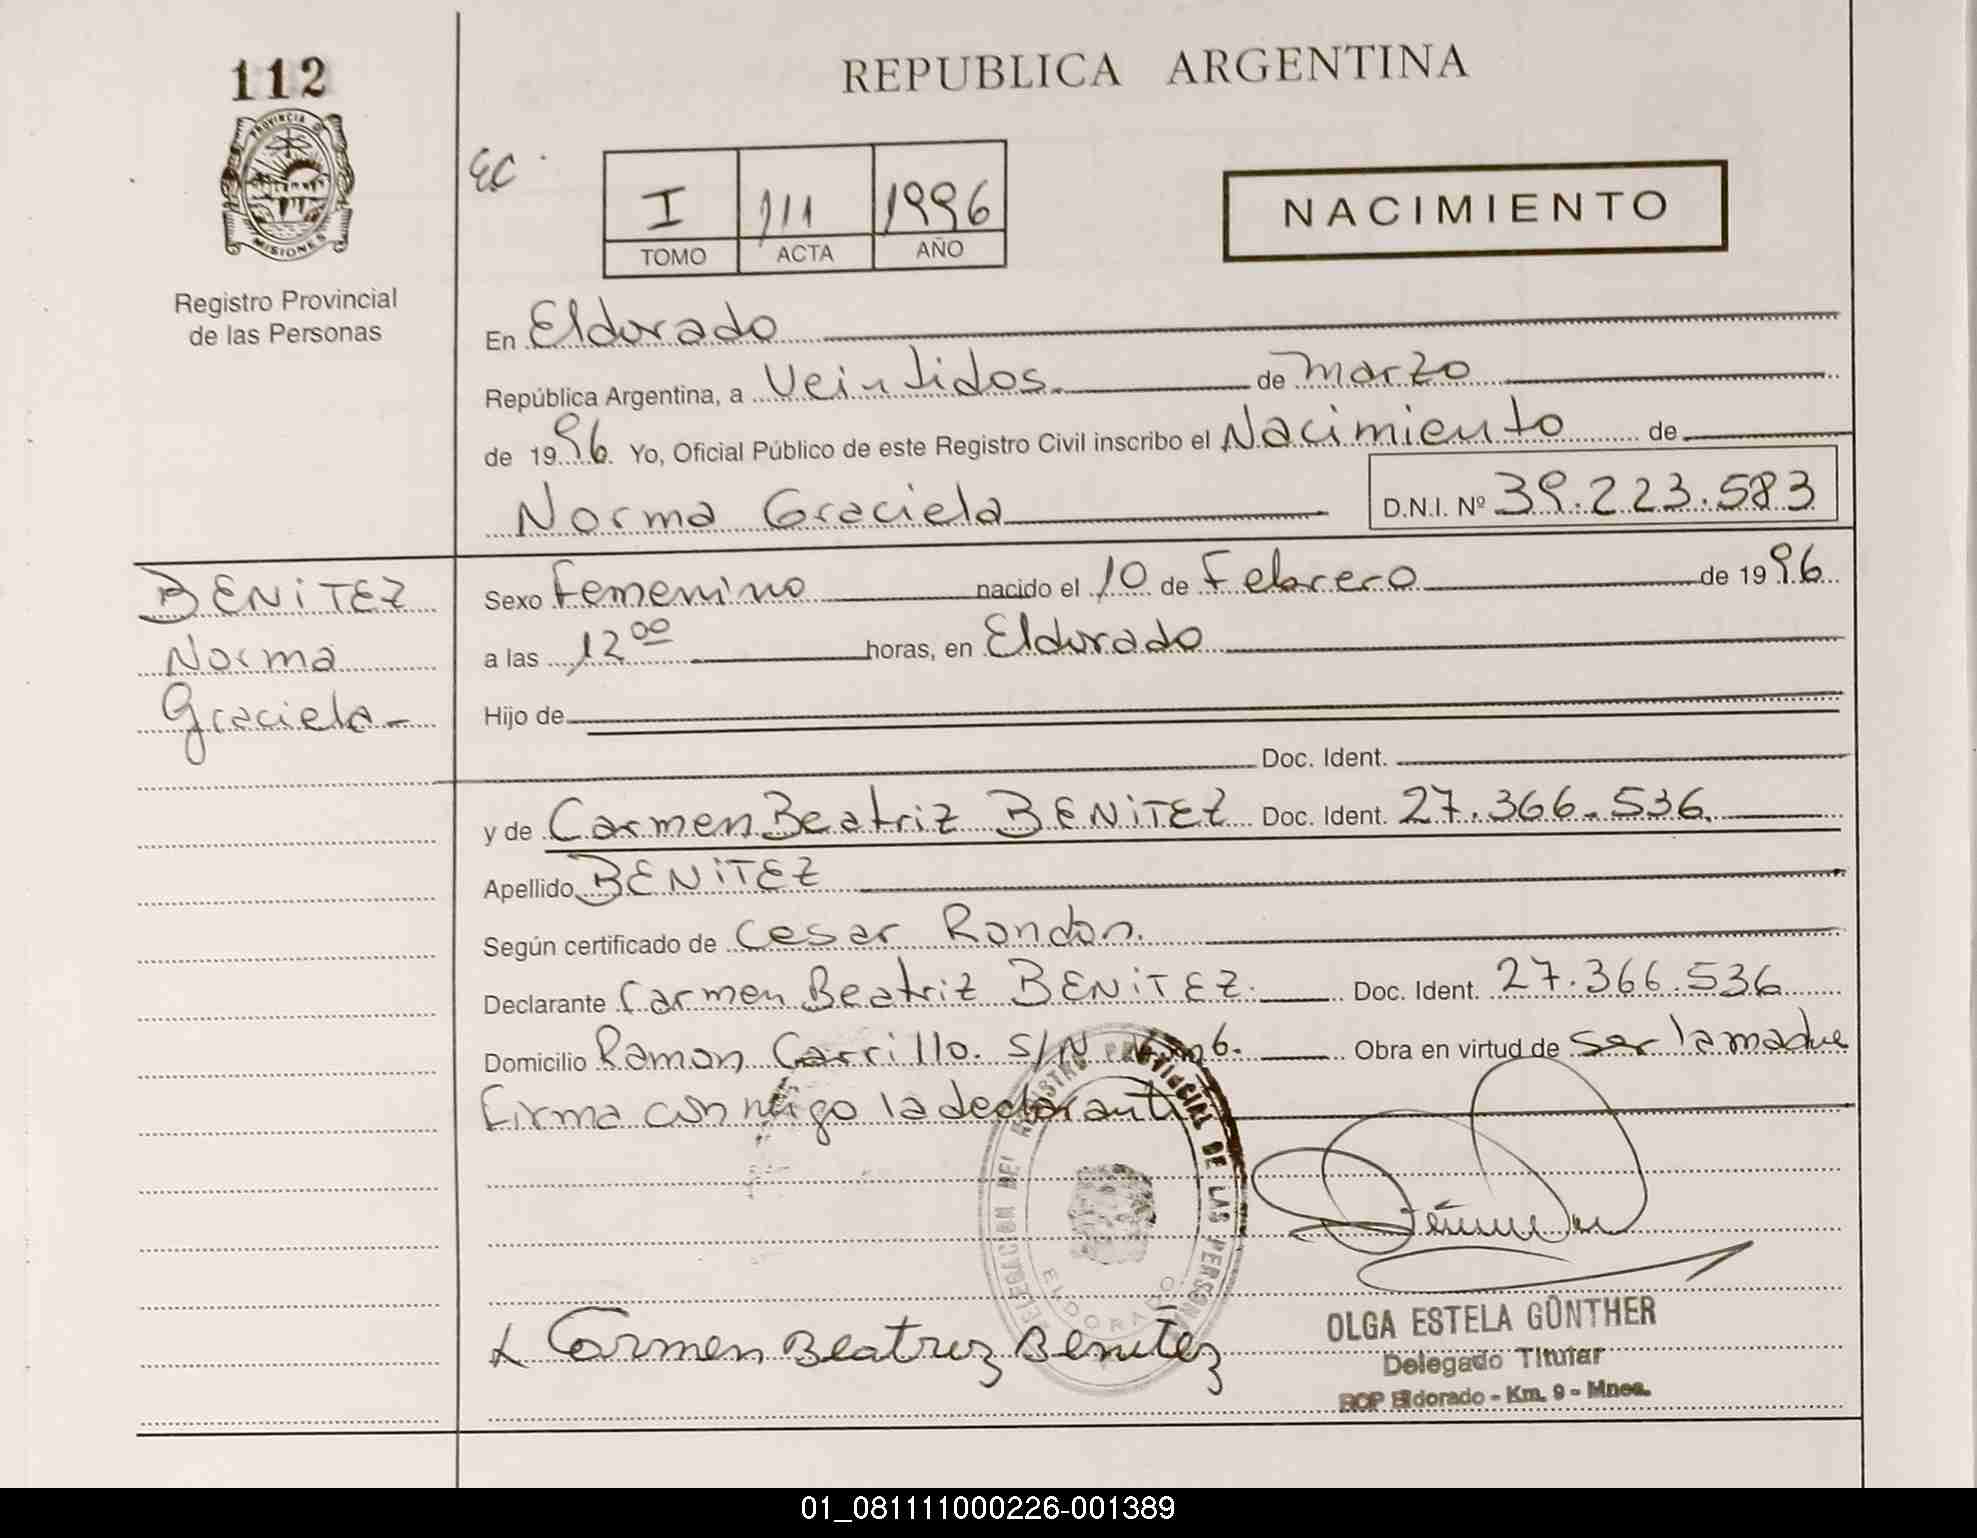 112
PROVINCIA DE
MISIONES
Registro Provincial
de las Personas
REPUBLICA ARGENTINA
EC
I 111 1996
TOMO ACTA AÑO
NACIMIENTO
En Eldorado
República Argentina, a Veintidos. de Marzo
de 1996. Yo, Oficial Público de este Registro Civil inscribo el Nacimiento de
Norma Graciela D.N.I. Nº 39.223.583
BENITEZ
Norma
Graciela
Sexo Femenino nacido el 10 de Febrero de 1996
a las 12 00 horas, en Eldorado
Hijo de
Doc. Ident.
y de Carmen Beatriz BENITEZ Doc. Ident. 27.366.536.
Apellido BENITEZ
Según certificado de Cesar Rondon.
Declarante Carmen Beatriz BENITEZ. Doc. Ident. 27.366.536
Domicilio Ramon Carrillo. S/N 6. Obra en virtud de ser la madre
Firma conmigo la declarante
DELEGACION DEL REGISTRO PROVINCIAL DE LAS PERSONAS
ELDORADO
Carmen Beatriz Benitez
OLGA ESTELA GÜNTHER
Delegado Titular
RCP Eldorado - Km. 9 - Mnes.
01_081111000226-001389